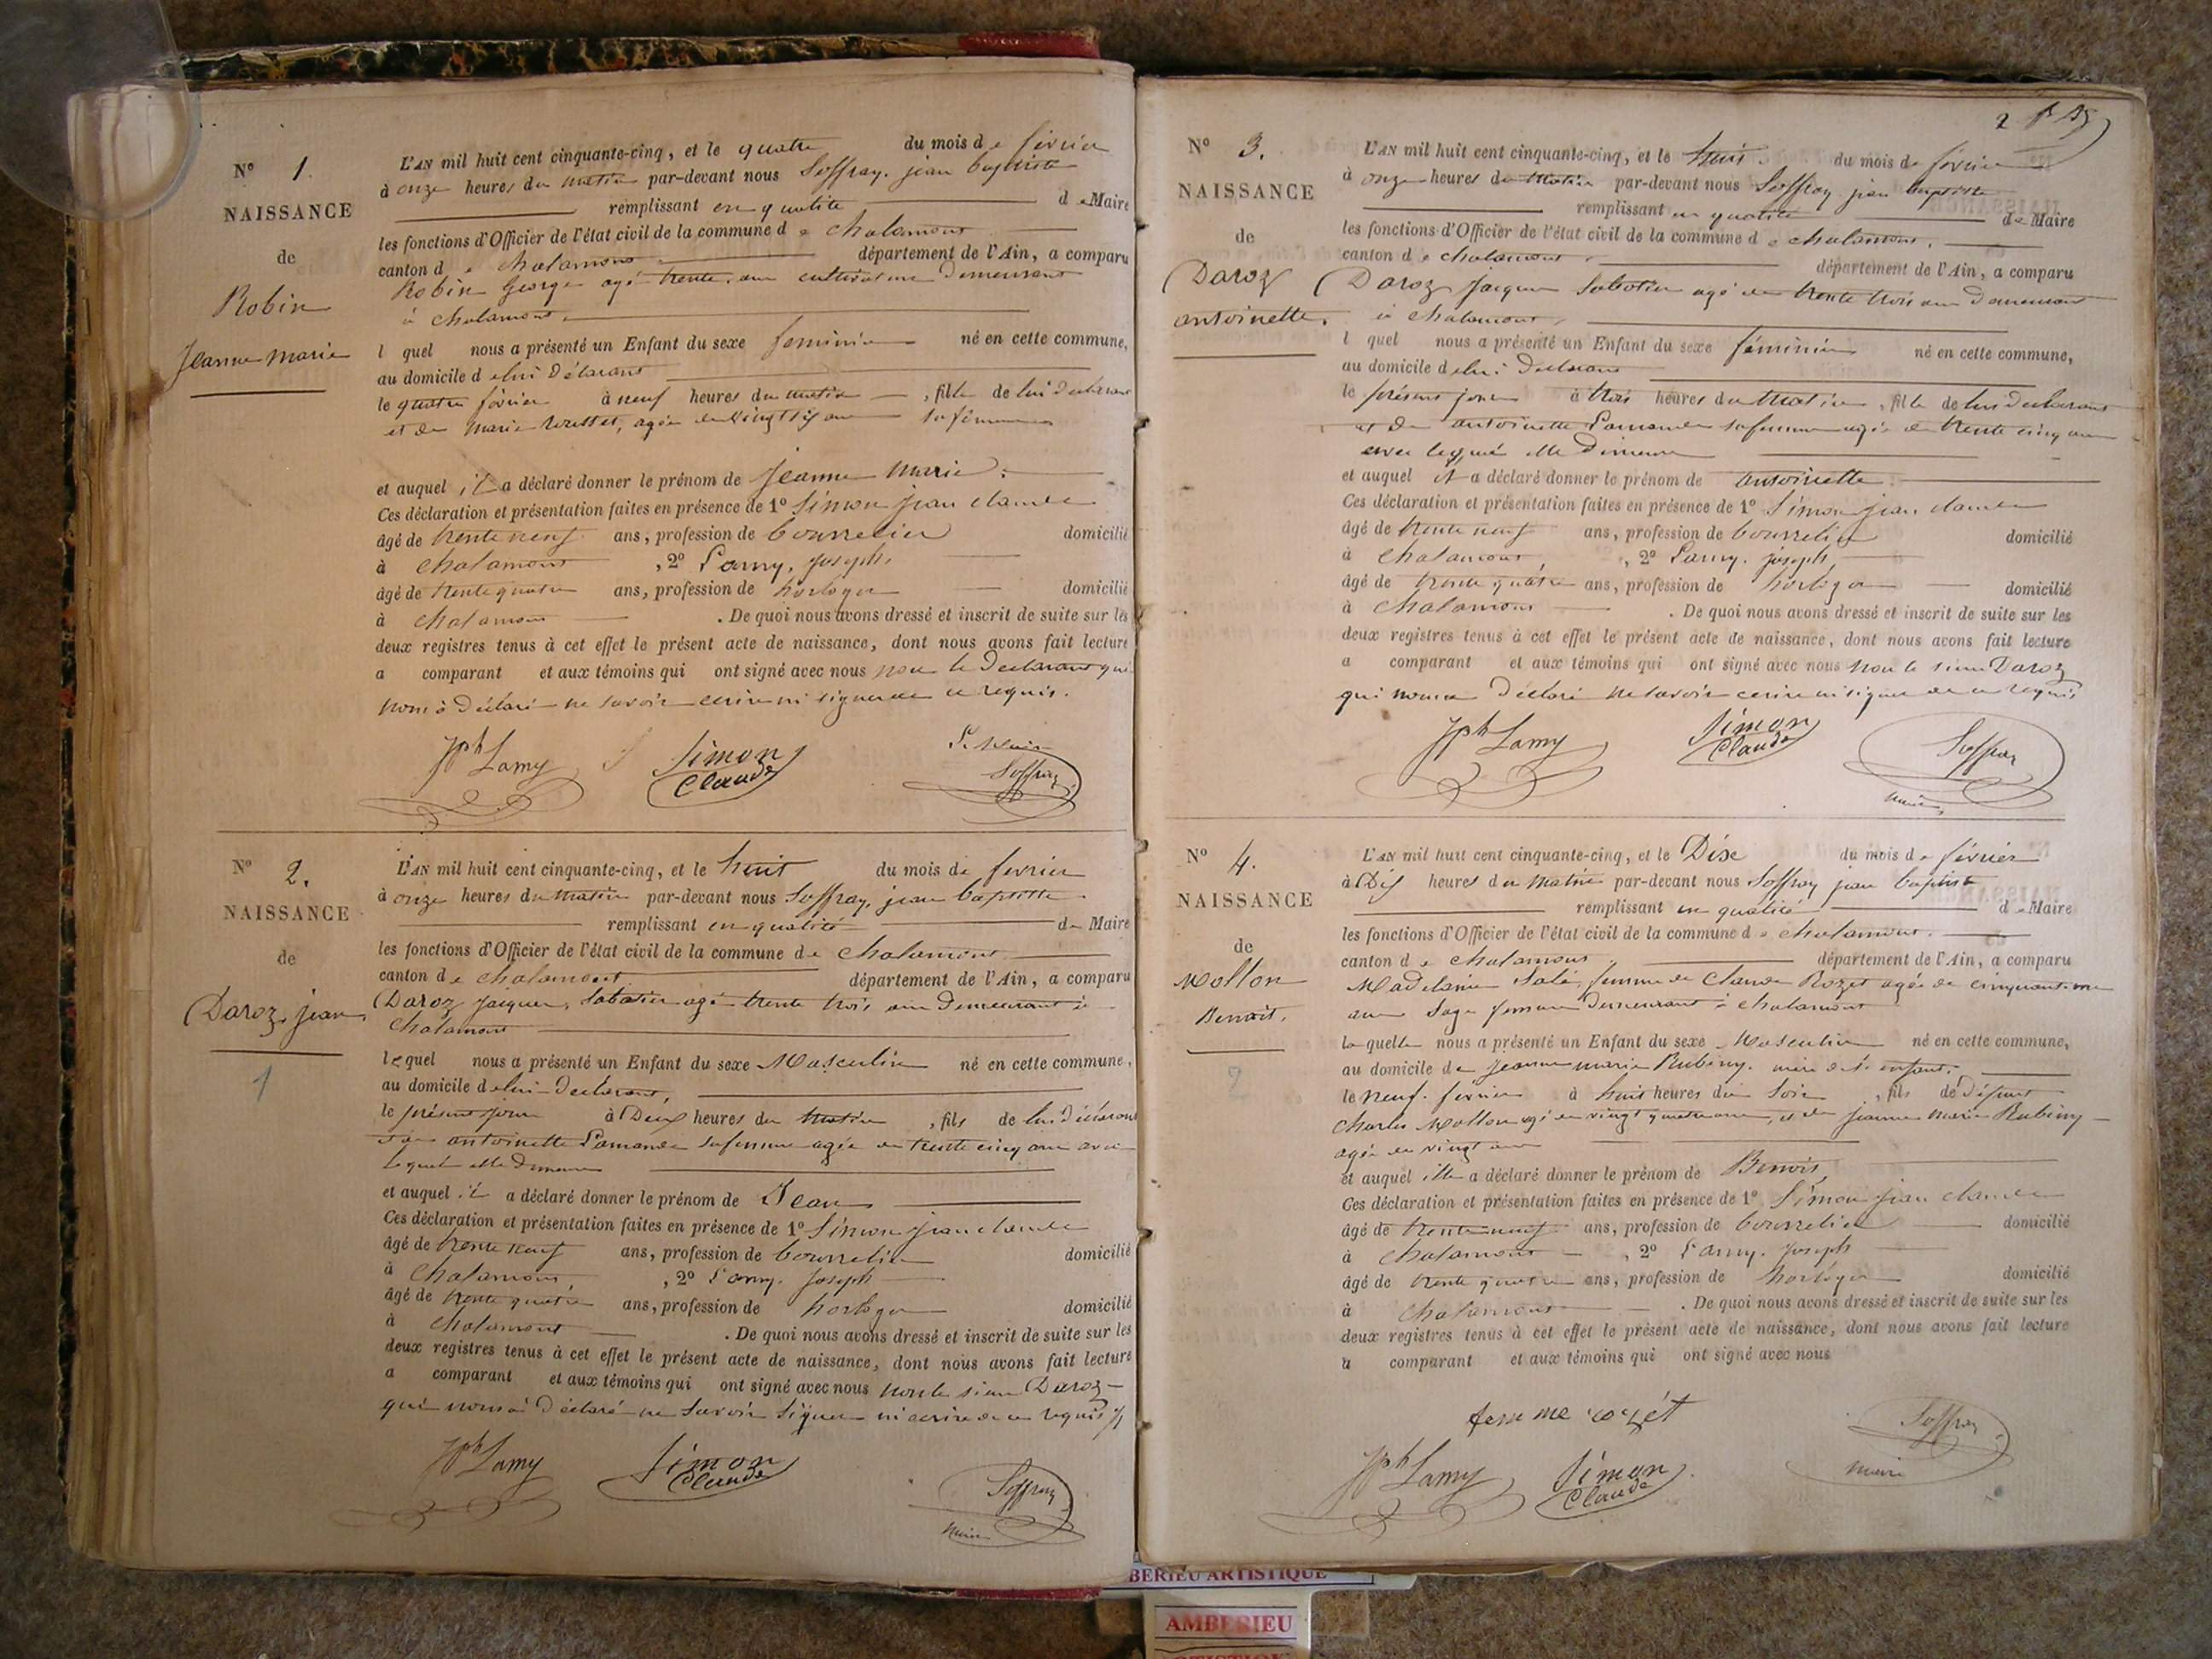 N° 1.
NAISSANCE
de
Robin
Jeanne marie
L'AN mil huit cent cinquante-cinq, et le quatre du mois de février
à onze heures du matin par-devant nous Soffray, jean baptiste
remplissant en qualité de Maire
les fonctions d'Officier de l'état civil de la commune de chalamont
canton de chalamont département de l'Ain, a comparu
Robin George agé trente ans cultivateur demeurant
à chalamont
l quel nous a présenté un Enfant du sexe feminin né en cette commune,
au domicile de lui déclarant
le quatre février à neuf heures du matin, fille de lui declarant
et de marie agée de vingt six ans sa femme
et auquel il a déclaré donner le prénom de Jeanne Marie.
Ces déclaration et présentation faites en présence de 1° Simon jean claude
âgé de trente neuf ans, profession de bourrelier domicilié
à chalamont, 2° Lamy, joseph,
âgé de trente quatre ans, profession de horloger domicilié
à chalamont. De quoi nous avons dressé et inscrit de suite sur les
deux registres tenus à cet effet le présent acte de naissance, dont nous avons fait lecture
a comparant et aux témoins qui ont signé avec nous non le declarant qui
nous à déclaré ne savoir ecrire ni signer de ce requis.
Jph Lamy Simon Claude Le Maire Soffray
N° 2.
NAISSANCE
de
Daroz, jean
1
L'AN mil huit cent cinquante-cinq, et le huit du mois de fevrier
à onze heures du matin par-devant nous Soffray, jean baptiste
remplissant en qualité de Maire
les fonctions d'Officier de l'état civil de la commune de chalamont
canton de chalamont département de l'Ain, a comparu
Daroz jacques, sabotier agé trente trois ans demeurant à
chalamont
lequel nous a présenté un Enfant du sexe Masculin né en cette commune,
au domicile de lui déclarant,
le présent jour à Deux heures du matin, fils de lui déclarant
et de antoinette Lamande sa femme agée de trente cinq ans avec
lequel elle demeure
et auquel il a déclaré donner le prénom de Jean
Ces déclaration et présentation faites en présence de 1° Simon jean claude
âgé de trente neuf ans, profession de bourrelier domicilié
à chalamont, 2° Lamy. joseph
âgé de trente quatre ans, profession de horloger domicilié
à chalamont. De quoi nous avons dressé et inscrit de suite sur les
deux registres tenus à cet effet le présent acte de naissance, dont nous avons fait lecture
a comparant et aux témoins qui ont signé avec nous non le sieur Daroz
qui nous à déclaré ne savoir signer ni ecrire de ce requis
Jph Lamy Simon Claude Soffray maire
2
N° 3.
NAISSANCE
de
Daroz
antoinette.
L'AN mil huit cent cinquante-cinq, et le huit du mois de février
à onze heures du matin par-devant nous Soffray jean baptiste
remplissant en qualité de Maire
les fonctions d'Officier de l'état civil de la commune de chalamont.
canton de chalamont. département de l'Ain, a comparu
Daroz jacques Sabotier agé de trente trois ans demeurant
à chalamont,
l quel nous a présenté un Enfant du sexe féminin né en cette commune,
au domicile de lui déclarant
le présent jour à trois heures du matin, fille de lui declarant
et de antoinette Lamande sa femme agée de trente cinq ans
avec lequel elle demeure
et auquel il a déclaré donner le prénom de antoinette
Ces déclaration et présentation faites en présence de 1° Simon jean claude
âgé de trente neuf ans, profession de bourrelier domicilié
à chalamont, 2° Lamy. joseph
âgé de trente quatre ans, profession de horloger domicilié
à chalamont. De quoi nous avons dressé et inscrit de suite sur les
deux registres tenus à cet effet le présent acte de naissance, dont nous avons fait lecture
a comparant et aux témoins qui ont signé avec nous non le sieur Daroz
qui nous a déclaré ne savoir ecrire ni signer de ce requis
Jph Lamy Simon Claude Soffray maire
N° 4.
NAISSANCE
de
Mollon
Benoit.
2
L'AN mil huit cent cinquante-cinq, et le Dix du mois de février
à Dix heures du matin par-devant nous Soffray jean baptiste
remplissant en qualité de Maire
les fonctions d'Officier de l'état civil de la commune de chalamont.
canton de chalamont département de l'Ain, a comparu
Madelaine Salé, femme de Claude Rozet agée de cinquante
ans Sage femme demeurant à chalamont
laquelle nous a présenté un Enfant du sexe Masculin né en cette commune,
au domicile de jeanne marie Rubiny. mère de l'enfant.
le neuf février à huit heures du Soir, fils de défunt
Charles Mollon agé de vingt quatre ans, et de jeanne marie Rubiny
agée de vingt ans
et auquel elle a déclaré donner le prénom de Benoit
Ces déclaration et présentation faites en présence de 1° Simon jean claude
âgé de trente neuf ans, profession de bourrelier domicilié
à chalamont, 2° Lamy. joseph
âgé de trente quatre ans, profession de horloger domicilié
à chalamont. De quoi nous avons dressé et inscrit de suite sur les
deux registres tenus à cet effet le présent acte de naissance, dont nous avons fait lecture
a comparant et aux témoins qui ont signé avec nous
femme rozét
Jph Lamy Simon Claude Soffray maire
BERIEU ARTISTIQUE
AMBERIEU